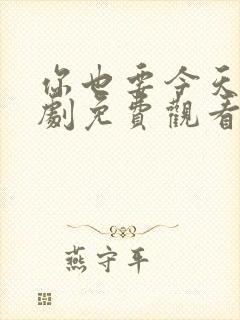 你也要今天
劇免費觀看
燕守平